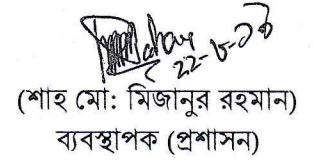 ২২-৮-১৩
(শাহ মো: মিজানুর রহমান)
ব্যবস্থাপক (প্রশাসন)